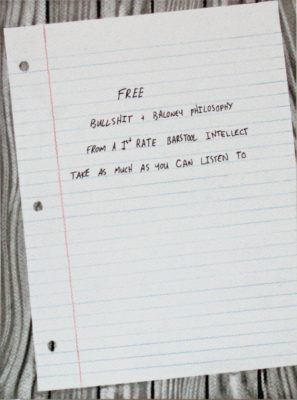 FREE
BULLSHIT + BALONEY PHILOSOPHY
FROM A 1st RATE BARSTOOL INTELLECT
TAKE AS MUCH AS YOU CAN LISTEN TO